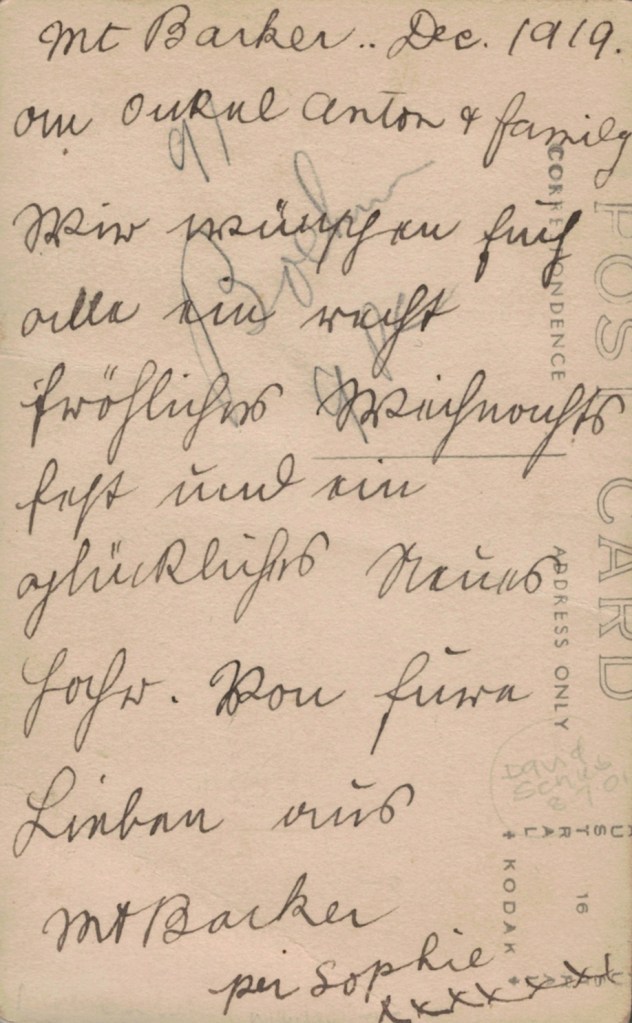 Mt Barker.. Dec. 1919.
an Onkel Anton & family
Wir wünschen Euch
alle ein recht
fröhliches Weihnachts
fest und ein
glückliches Neues
Jahr. Von Eure
Lieben aus
Mt Barker
per Sophie
xxxxxxx
91
Boehm
POST CARD
CORRESPONDENCE
ADDRESS ONLY
David
AUSTRAL
16
KODAK